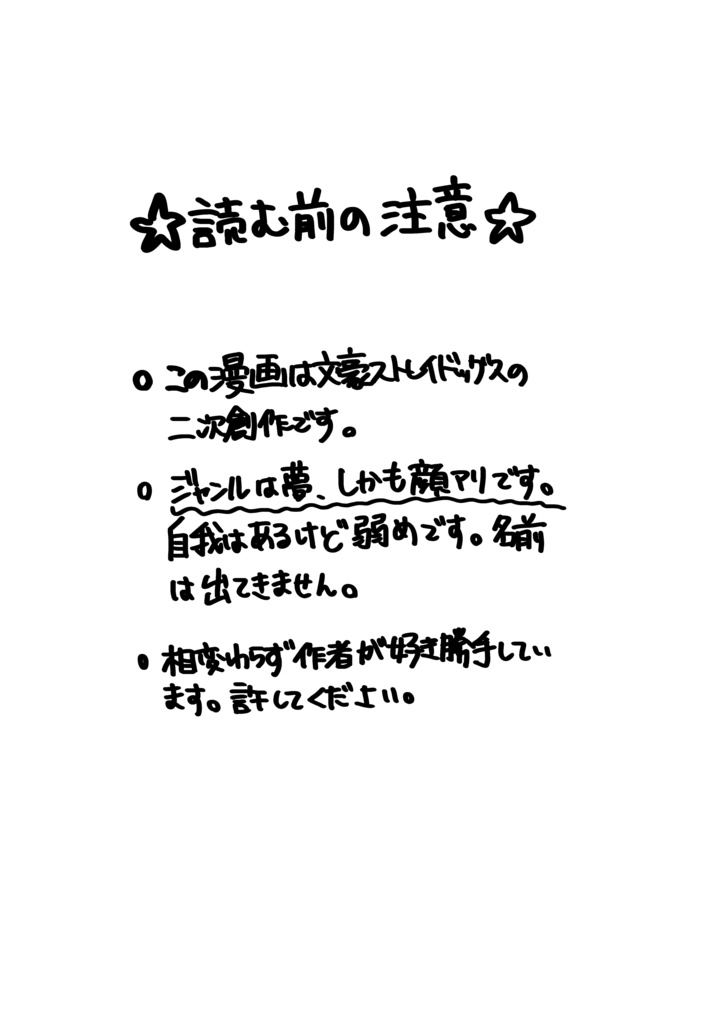 ☆読む前の注意☆
○ この漫画は文豪ストレイドッグスの
二次創作です。
○ ジャンルは夢、しかも顔アリです。
自我はあるけど弱めです。名前
は出てきません。
○ 相変わらず作者が好き勝手してい
ます。許してくだよい。